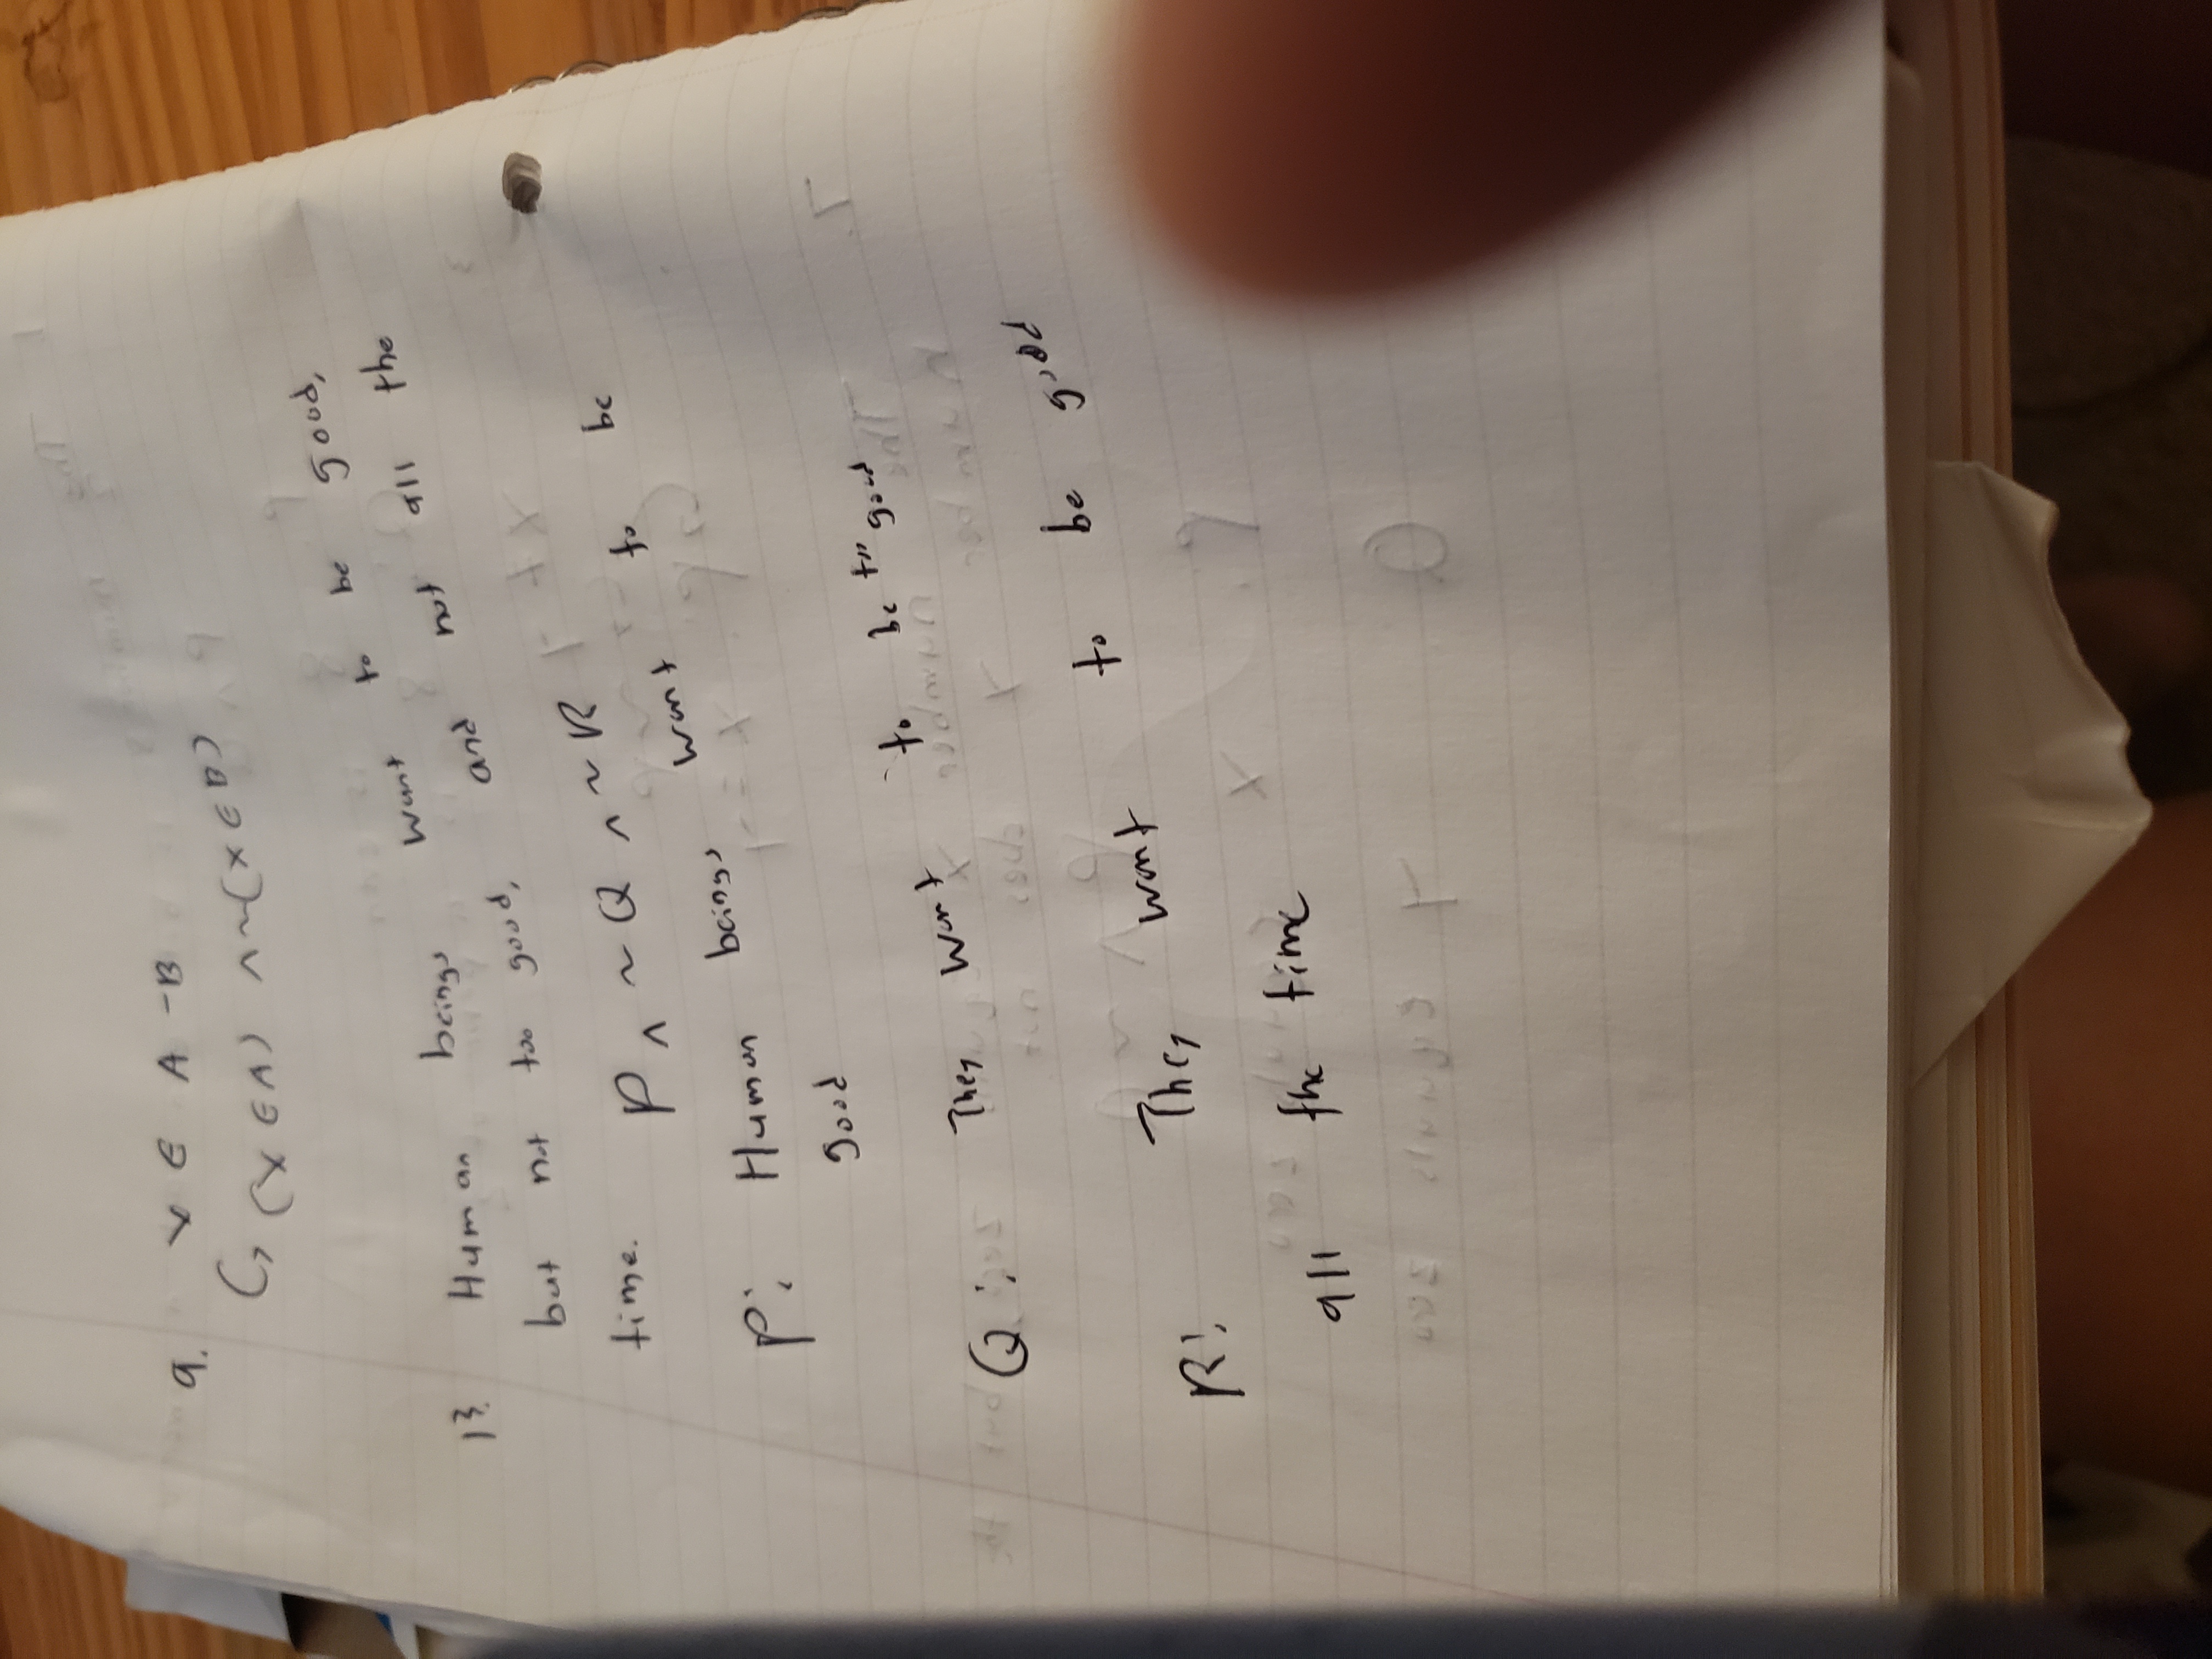 9. x ∈ A - B
↳ (x ∈ A) ∧ ~(x ∈ B)
13. Human beings want to be good,
but not too good, and not all the
time. P ∧ ~Q ∧ ~R
P: Human beings want to be
good
Q: They want to be too good
R: They want to be good
all the time